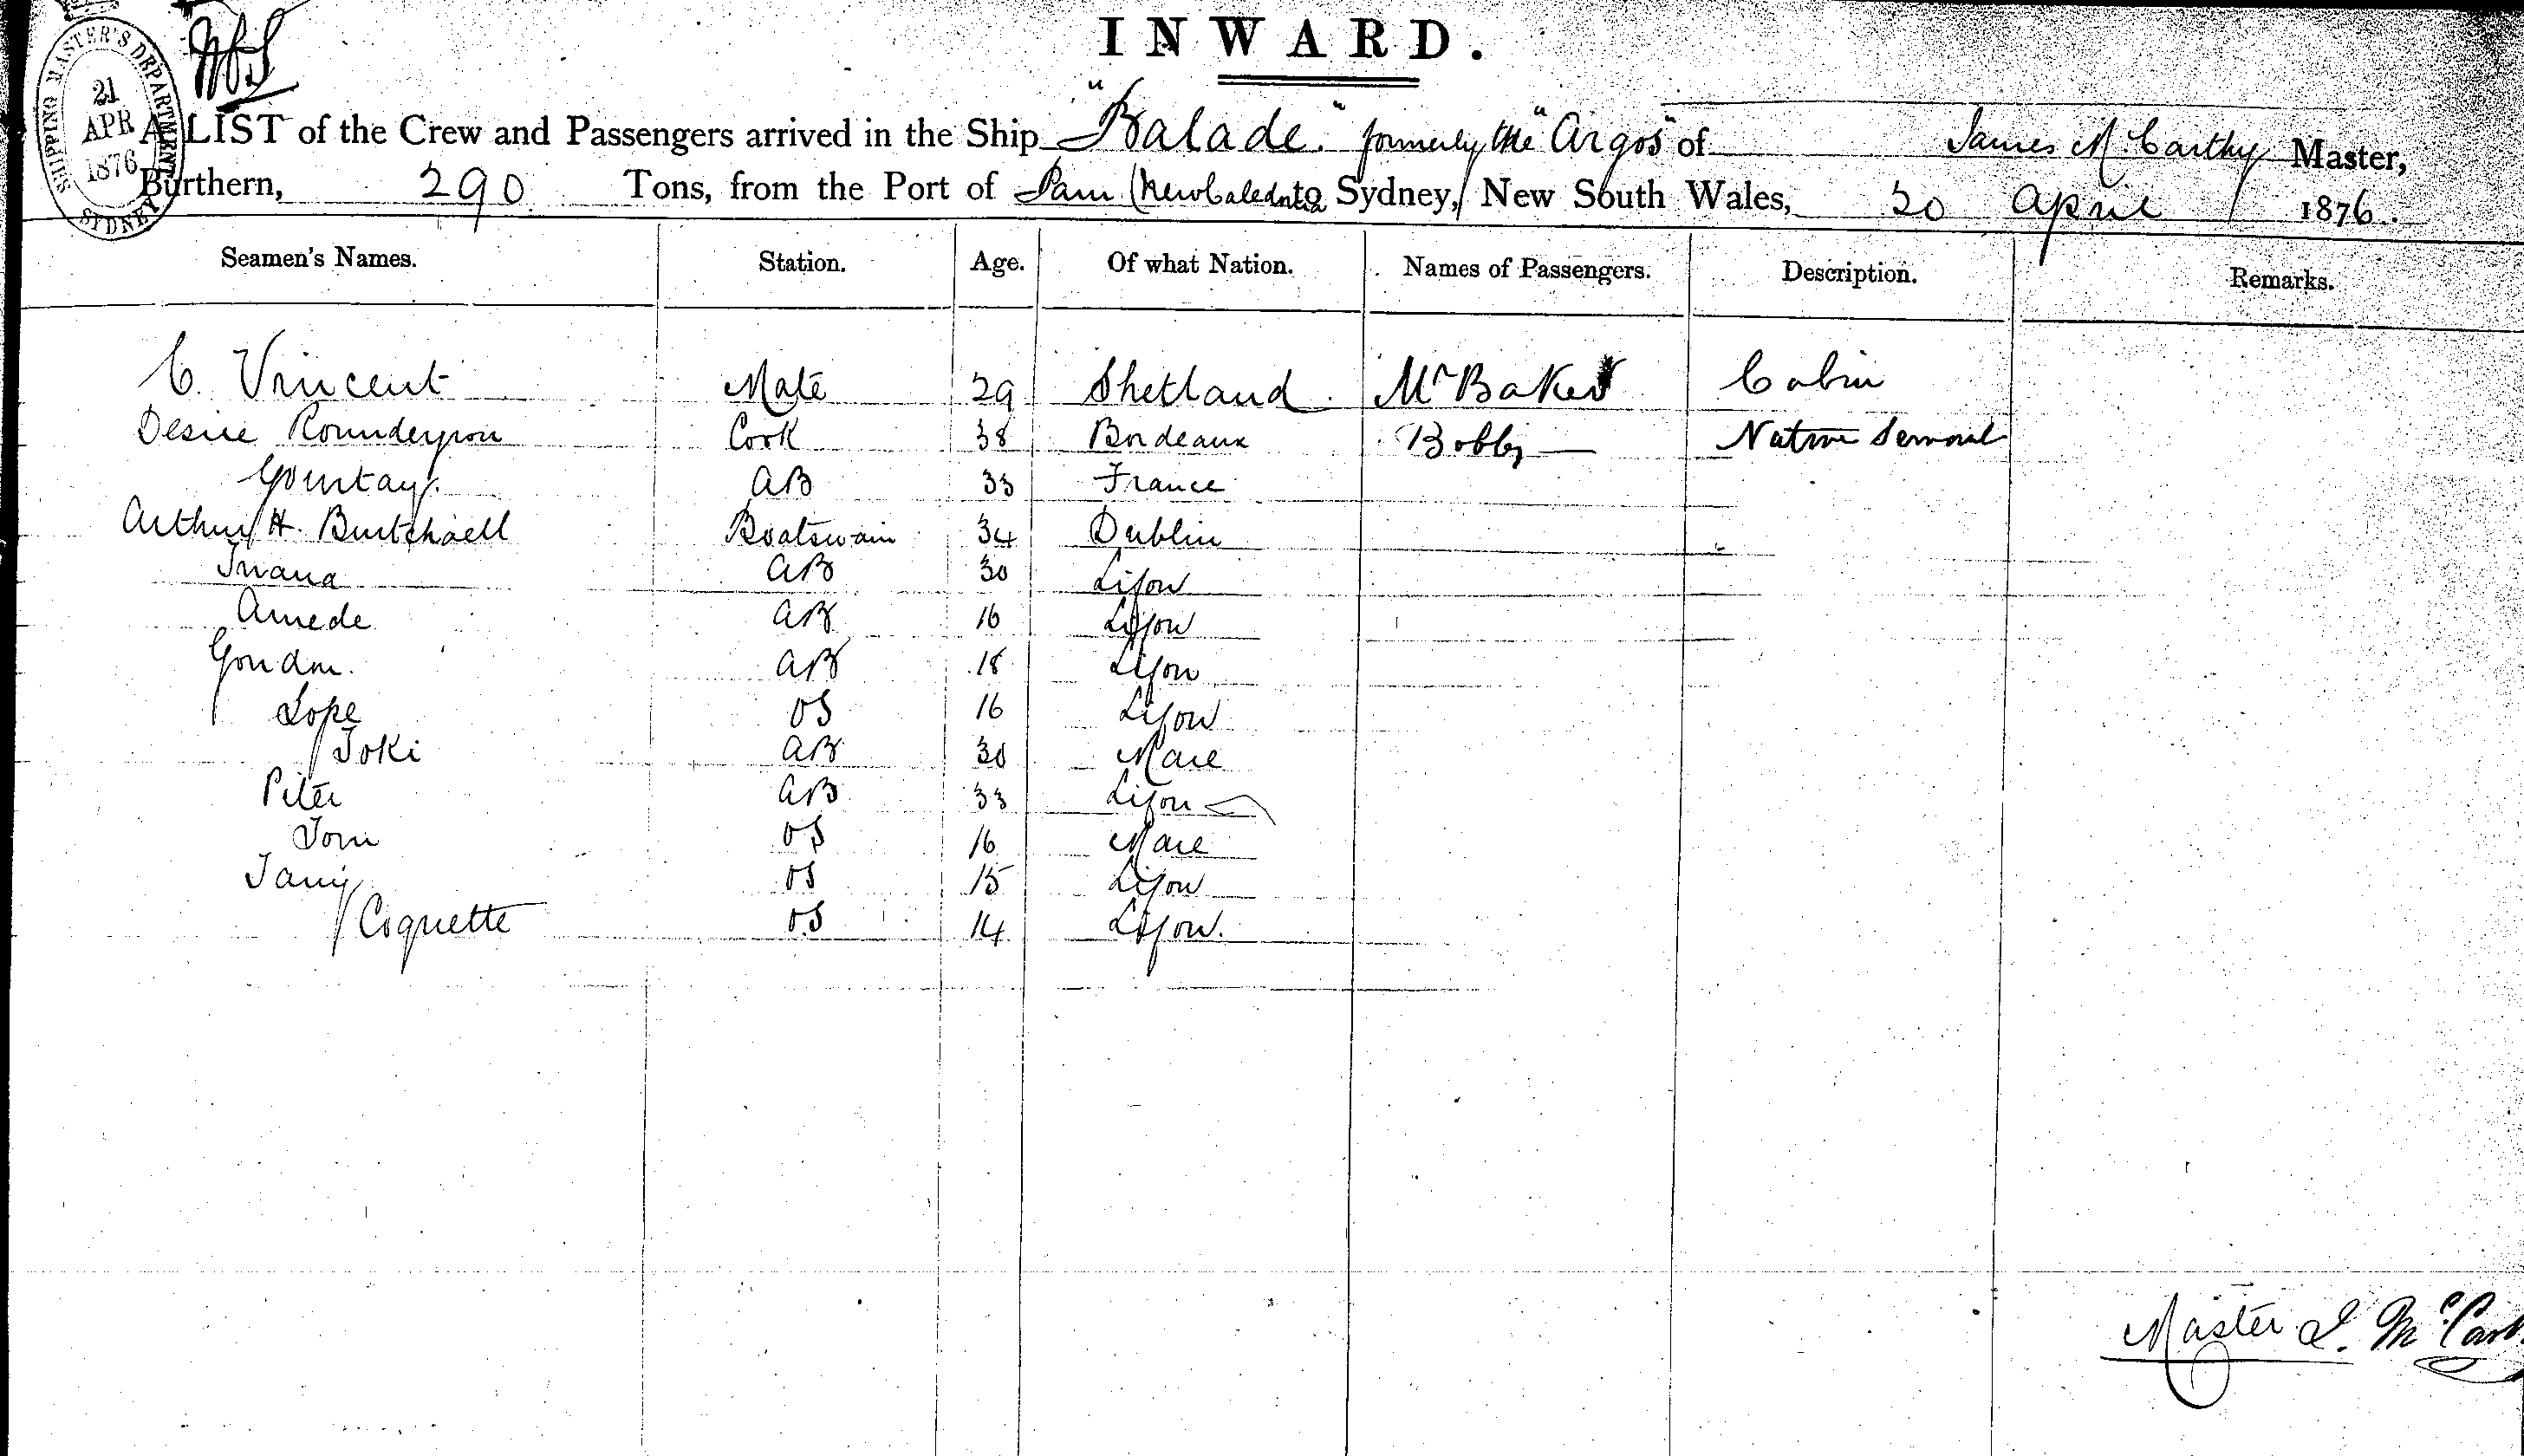 INWARD.
SHIPPING MASTER'S DEPARTMENT
21
APR
1876
SYDNEY
A LIST of the Crew and Passengers arrived in the Ship "Balade" formerly the "Argos" of James McCarthy Master,
Burthern, 290 Tons, from the Port of Pam (New Caledonia to Sydney, New South Wales, 20 April 1876.
Seamen's Names. Station. Age. Of what Nation. Names of Passengers. Description. Remarks.
C. Vincent Mate 29 Shetland Mr Baker Cabin
Desire Cook 38 Bordeaux Bobby Native Servant
Gourtay. AB 33 France
Arthur H. Burtchaell Boatswain 34 Dublin
AB 30 Lifou
Amede AB 16 Lifou
AB 18 Lifou
Lope OS 16 Lifou
Toki AB 30 Mare
Piter AB 33 Lifou
Tom OS 16 Mare
OS 15 Lifou
Coquette OS 14 Lifou.
Master J. McCart